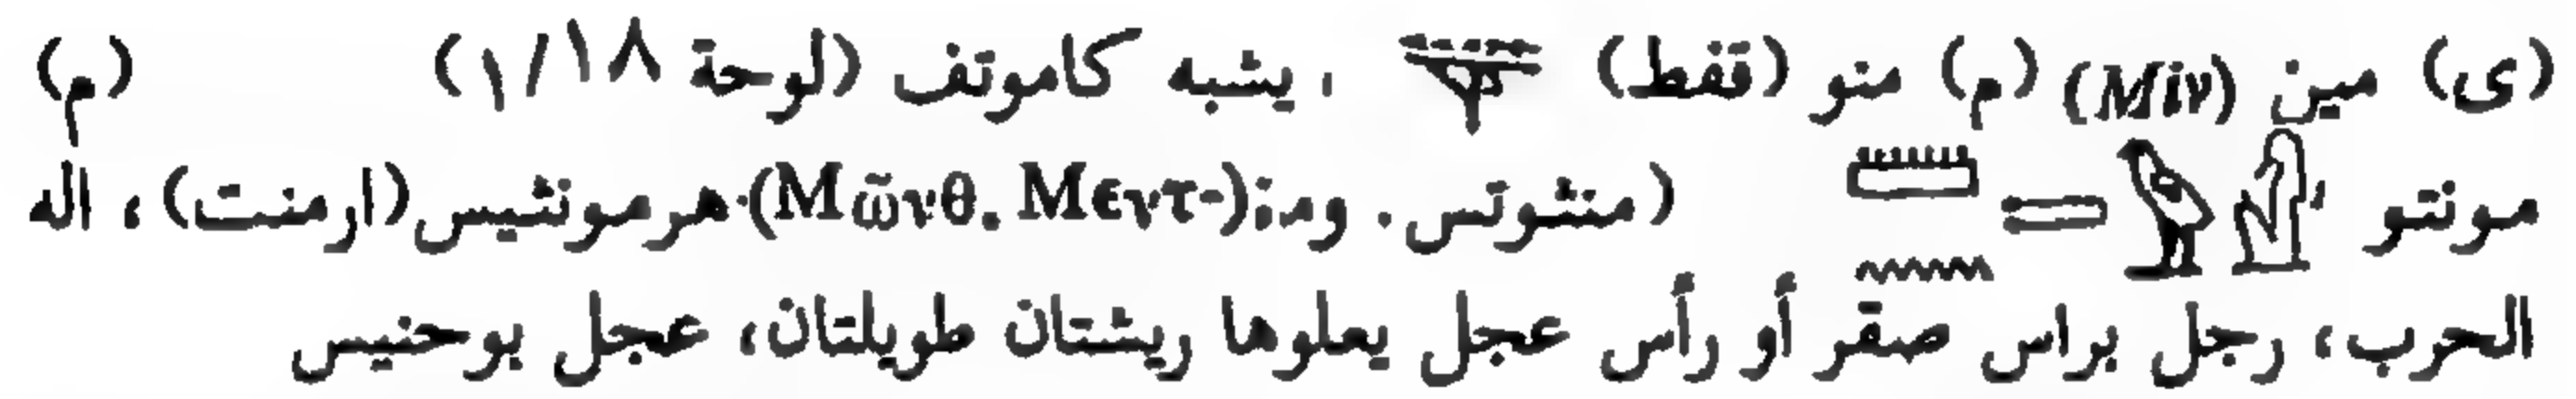 (ى) مين (Μiν) (م) منو (قفط) ، يشبه كاموتف (لوحة ١/١٨) (م)
مونتو (منثوتس. ومن (Μῶνθ. Μεντ-) هرمونثيس (ارمنت)، اله
الحرب، رجل براس صقر أو رأس عجل يعلوها ريشتان طويلتان، عجل بوحنيس